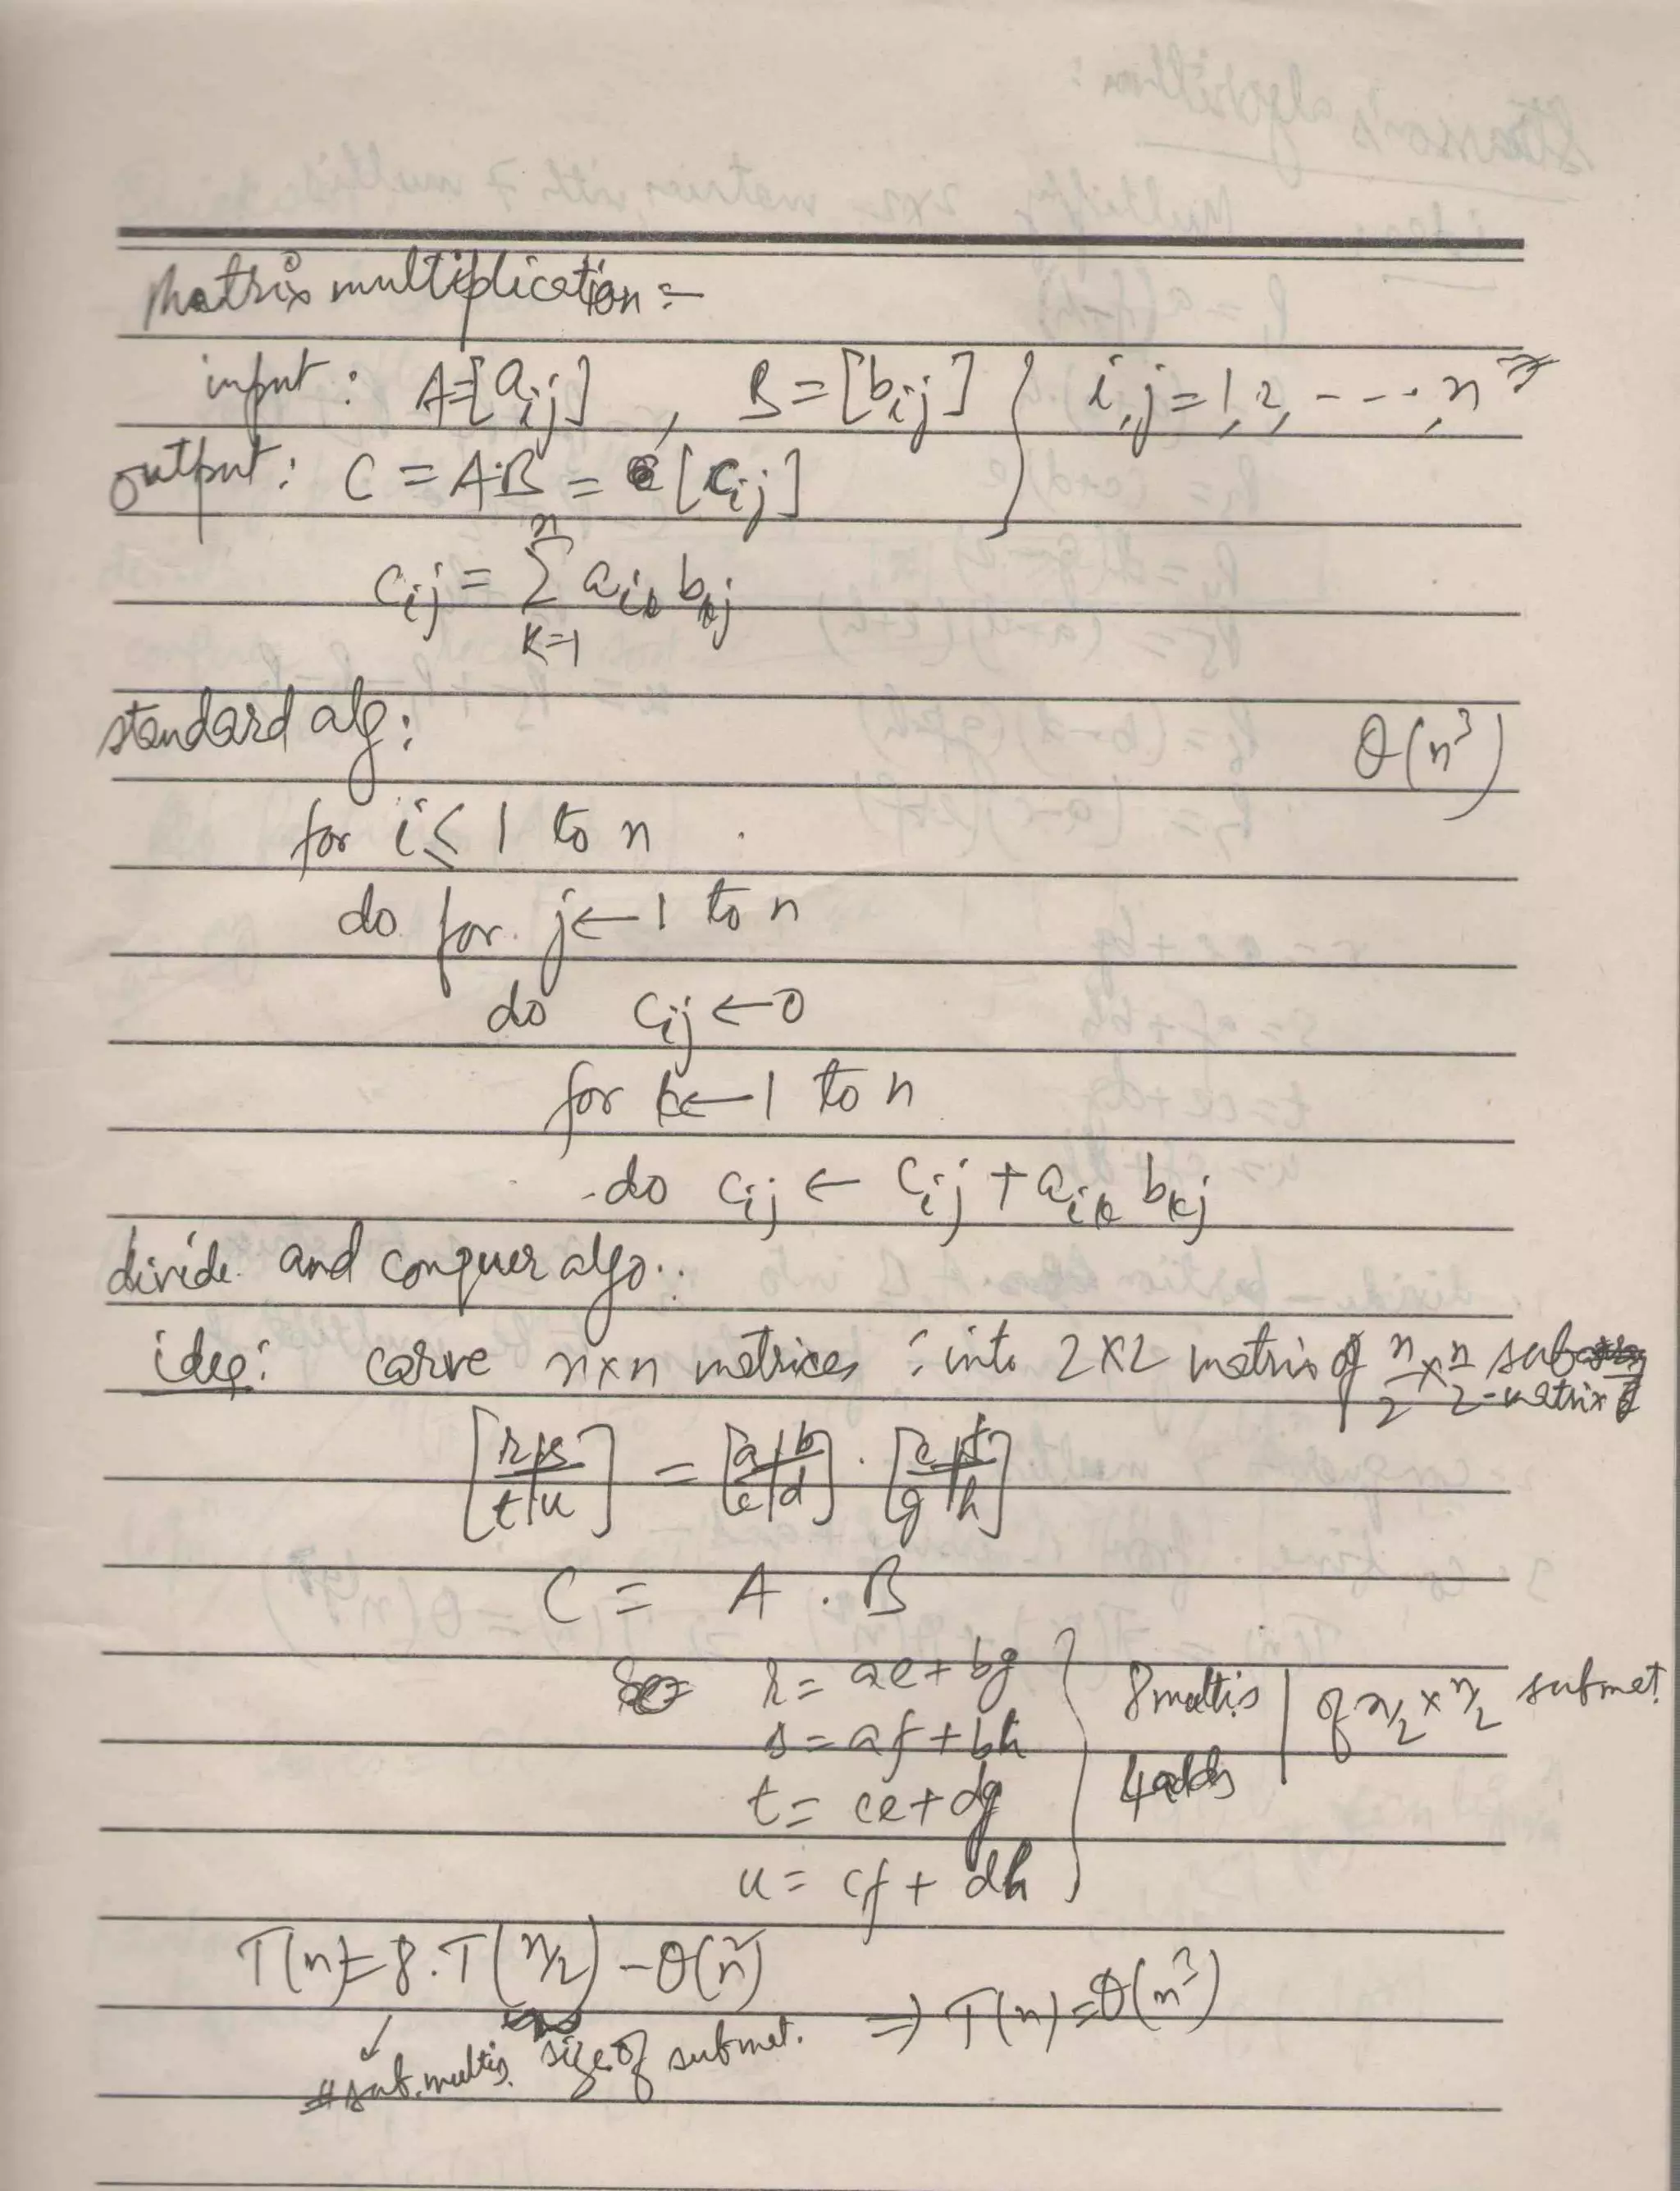 Matrix multiplication :-
input : A=[aij] , B=[bij] } i,j=1,2,-----,n
output : C = A.B = [cij]
cij = n∑k=1 aik bkj
standard alg: θ(n³)
for i ≤ 1 to n
do for j ← 1 to n
do cij ← 0
for k ← 1 to n
do cij ← cij + aik bkj
divide and conquer algo..
idea: carve n×n matrices : into 2×2 matrix of n/2 × n/2 sub
-matrix
[r|s / t|u] = [a|b / c|d] . [e|f / g|h]
C = A . B
r = ae + bg } 8 multis | of n/2 × n/2 submat.
s = af + bh
t = ce + dg 4 adds
u = cf + dh
T(n) = 8.T(n/2) - θ(n²) ⇒ T(n) = θ(n³)
# sub.multis. size of submat.